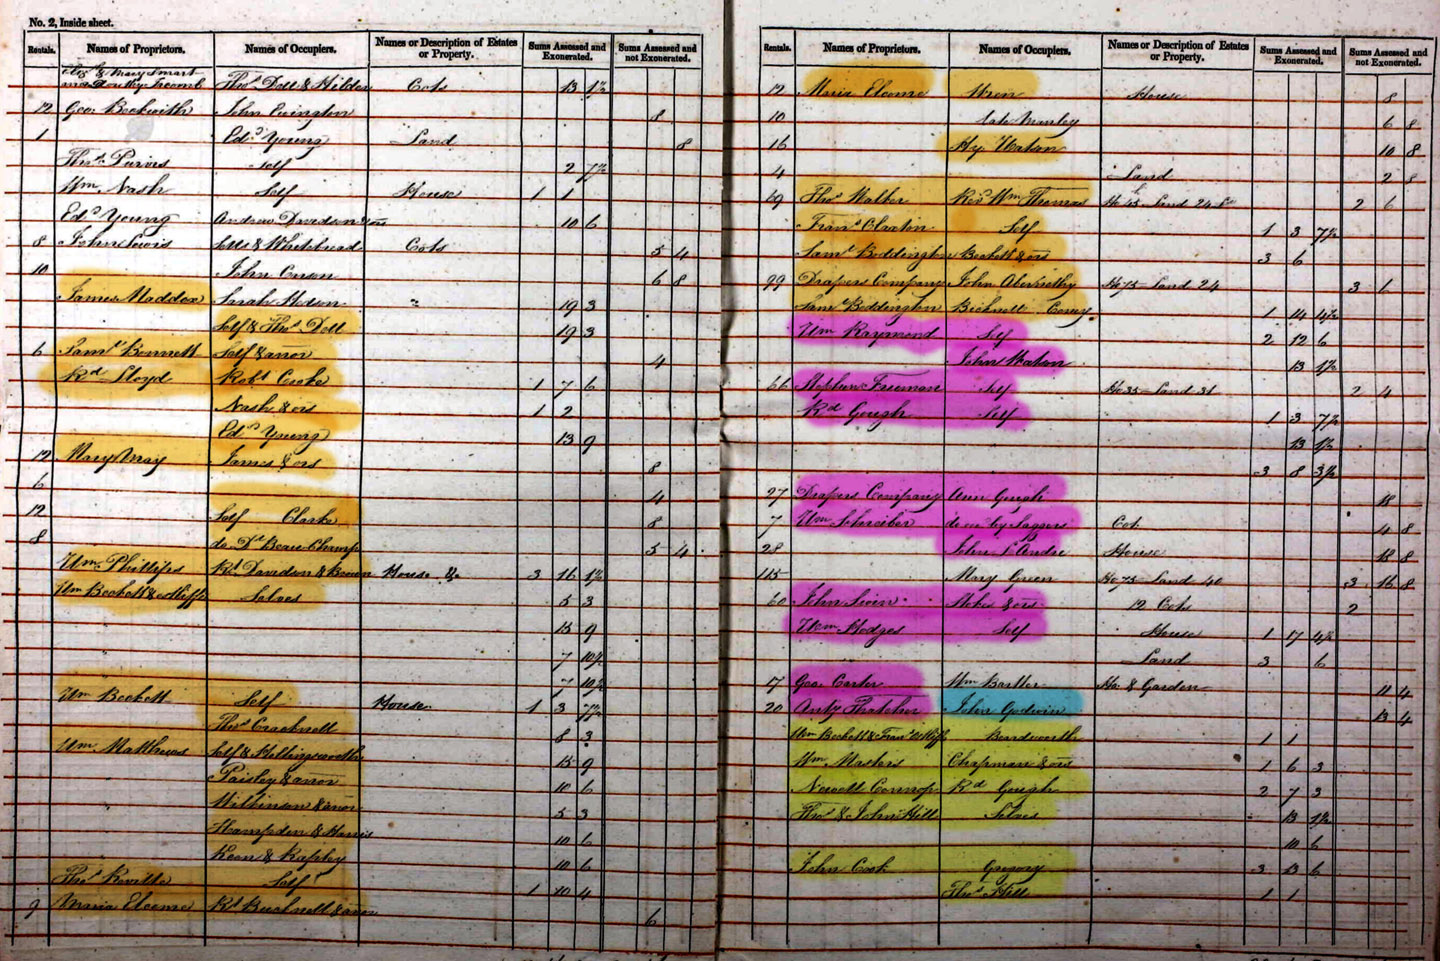 No. 2, Inside sheet.
Rentals. Names of Proprietors. Names of Occupiers. Names or Description of Estates or Property. Sums Assessed and Exonerated. Sums Assessed and not Exonerated.
& Mary Smart
Thos. Dell & Wilder Cots 13 1½
12 Geo. Beckwith John Livington 8
1 Edd. Young Land 8
Thos. Purvis Self 2 7½
Wm. Nash Self House 1 1
Edd. Young Andrew Davidson & ors 10 6
8 John Lewis Sells & Whitehead Cots 5 4
10 John Curson 6 8
James Maddox Sarah Hudson " 19 3
Self & Thos. Dell 19 3
6 Saml. Bonnett Self & anor 4
Rd. Lloyd Robt. Cooke 1 7 6
Nash & ors 1 2
Edd. Young 13 9
12 Mary May James & ors 8
6 4
12 Self Clarke 8
8 do Dr. Beauchamp 5 4
Wm. Phillips Rd. Davidson & Brown House & 3 16 1½
Wm Beckett & Selves 5 3
15 9
7 10½
7 10½
Wm Beckett Self House 1 3 7½
Thos. Cracknell 8 3
Wm. Matthews Self & Hollingsworth 15 9
Paisley & anor 10 6
Wilkinson & anor 5 3
Hampden & Harris 10 6
Keen & Rapley 10 6
Thos. Reville Self 1 10 4
9 Maria Elcome Rd. Bucknell & anor 6
Rentals. Names of Proprietors. Names of Occupiers. Names or Description of Estates or Property. Sums Assessed and Exonerated. Sums Assessed and not Exonerated.
12 Maria Elcome Wren House 8
10 late Manley 6 8
16 Hy. 10 8
4 Land 2 8
49 Thos. Walker Revd. Wm. Thomas Ho 25 Land 24 2 6
Frans. Claxton Self 1 3 7½
Saml. Boddington Beckett & ors 3 6
99 Drapers Company John Abernethy Ho 75 Land 24 3 1
Saml. Boddington Bicknell 1 14 4½
Wm. Raymond Self 2 12 6
John Watson 13 1½
66 Stephen Freeman Self Ho 35 Land 31 2 4
Rd. Gough Self 1 3 7½
13 1½
3 8 3½
27 Drapers Company Ann Gough 18
7 Wm. Schreiber decd by Saggers Cot 4 8
28 John L Andre House 18 8
115 Mary Green Ho 75 Land 40 3 16 8
60 John Stokes & ors 12 Cots 2
Wm. Hodges Self House 1 17 4½
Land 3 6
17 Geo. Carter Wm Bartter Ho & Garden 11 4
20 Anty. Thatcher John Godwin 13 4
Wm Beckett & Frans. Bendworth 1 1
Wm. Masters Chapman & ors 1 6 3
Newell Connop Rd. Gough 2 7 3
Thos. & John Hill Selves 13 1½
10 6
John Cook Gregory 3 13 6
Thos. Hill 1 1